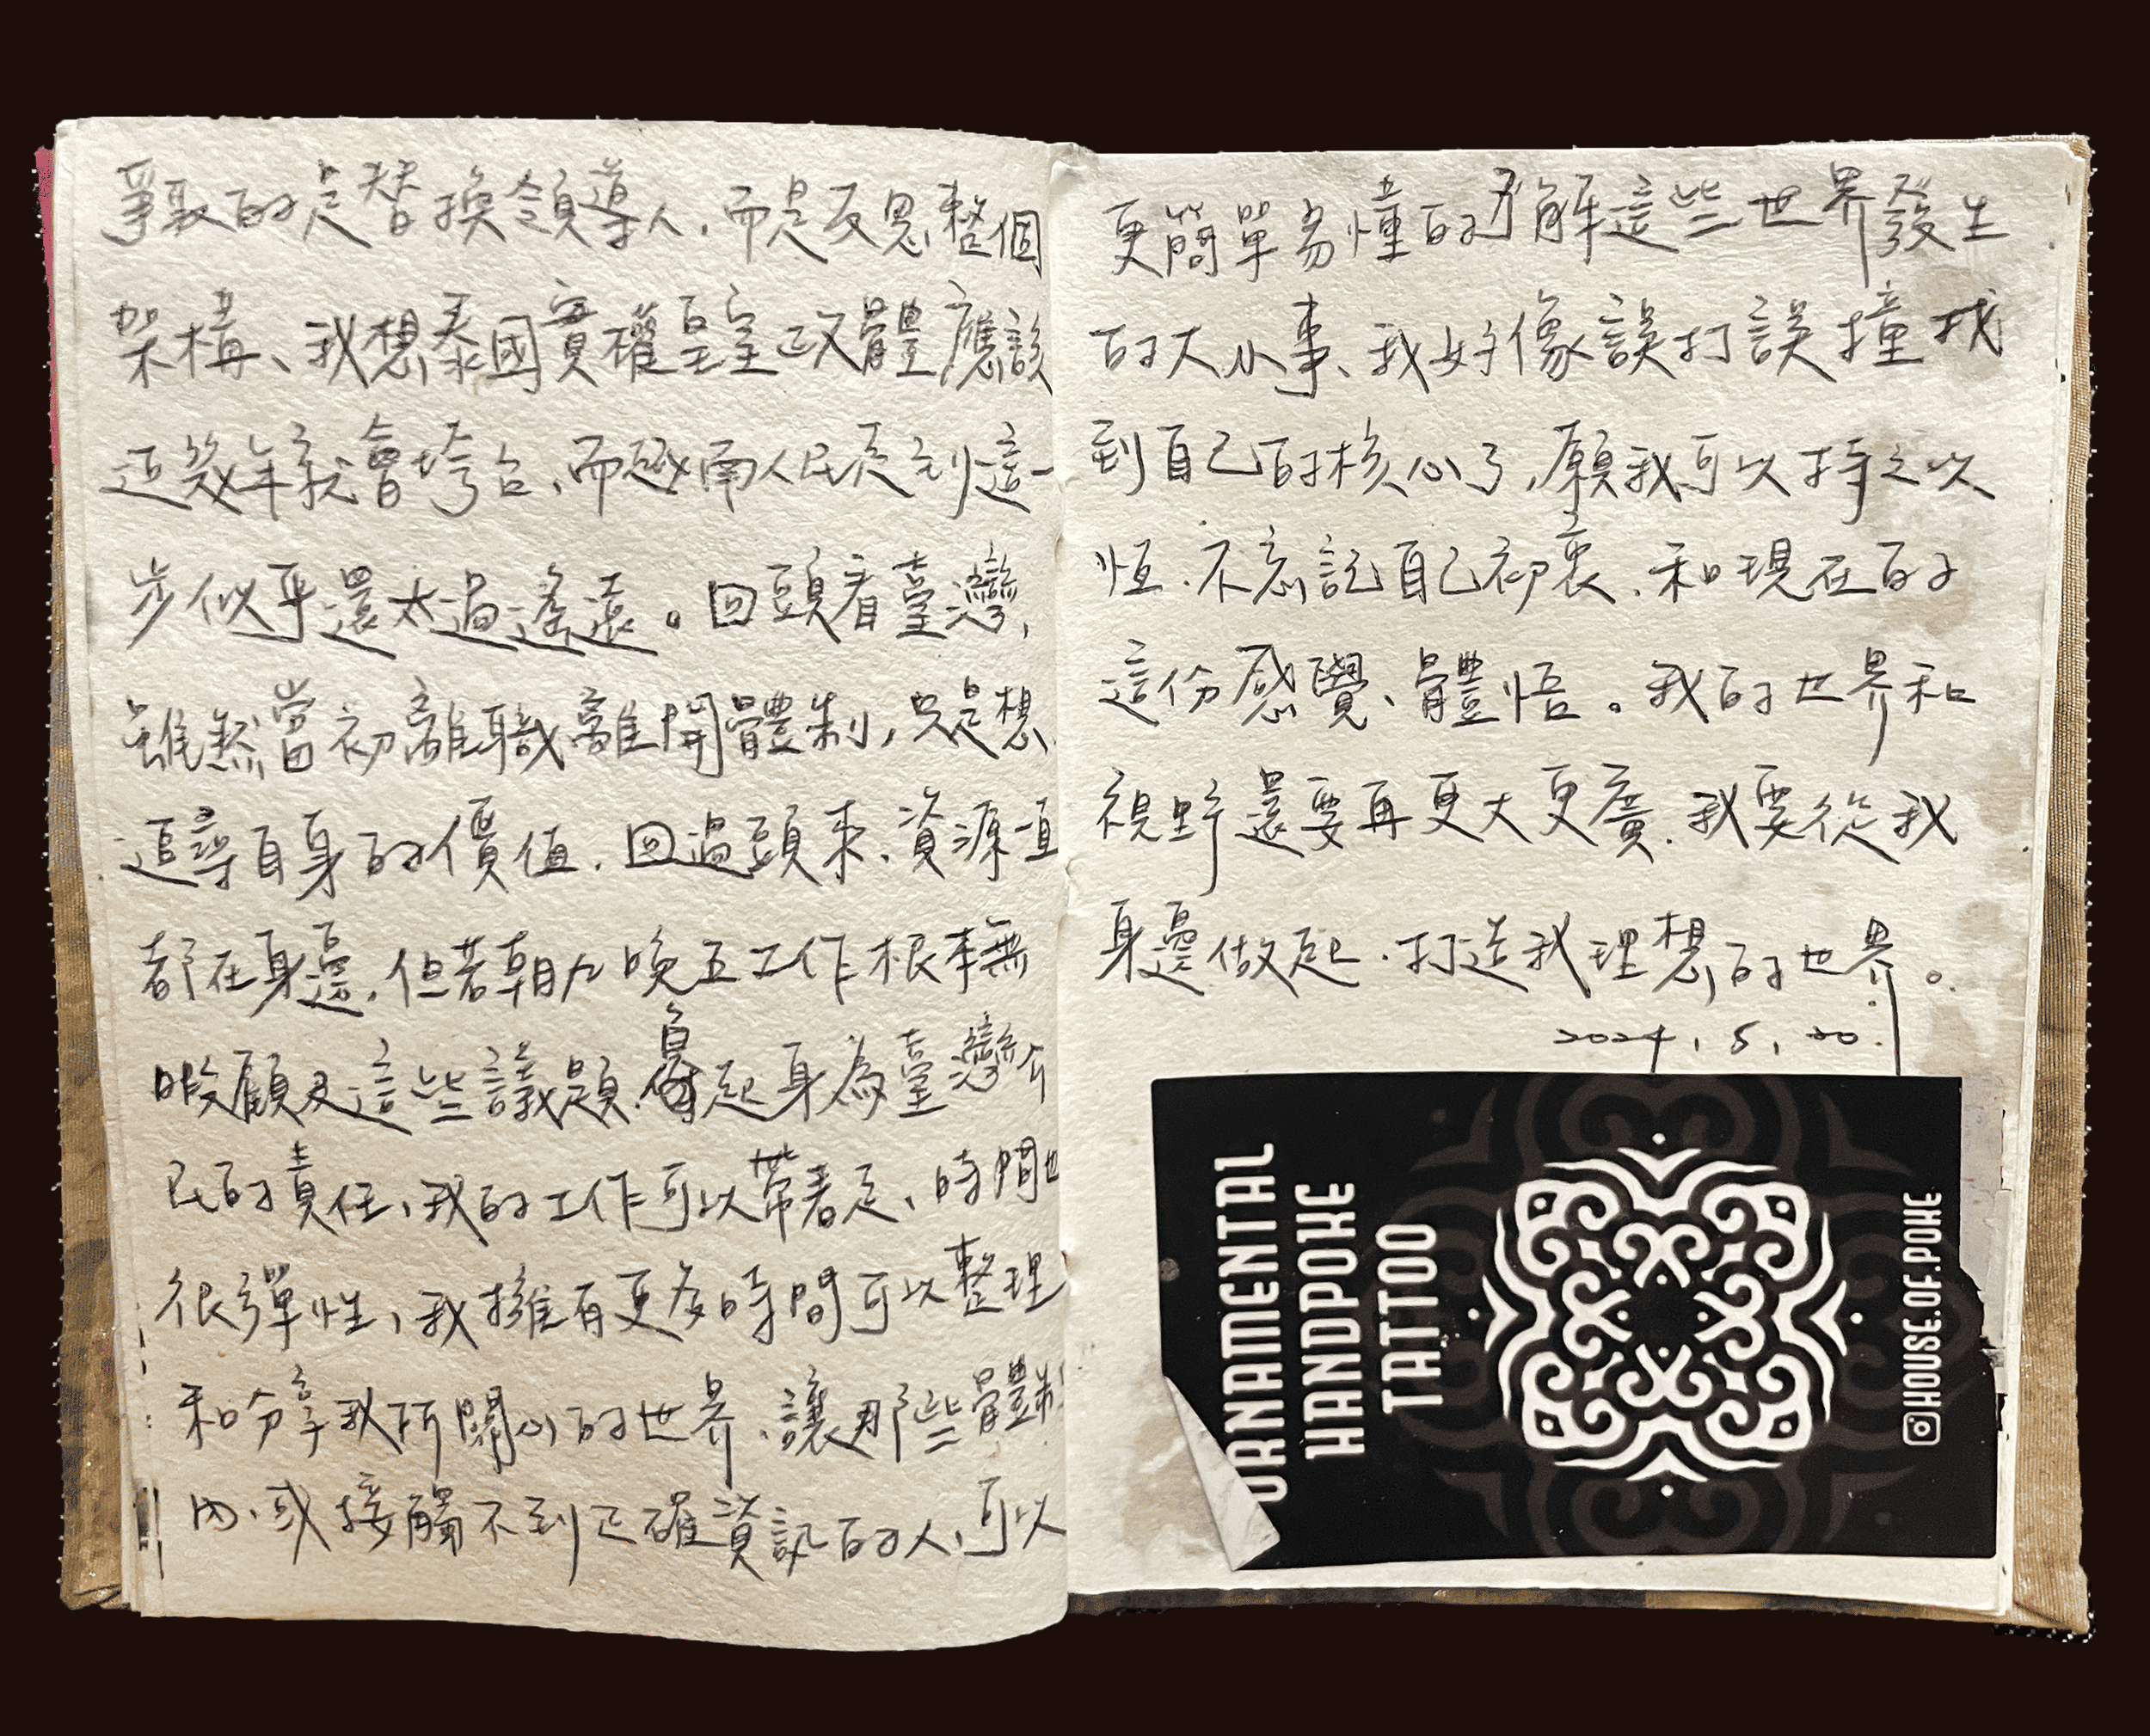 爭取的是替換領導人，而是反思整個
架構、我想泰國實權皇室政體應該
近幾年就會垮台、而越南人民走到這一
步似乎還太過遙遠。回頭看臺灣，
雖然當初離職離開體制，只是想
追尋自身的價值．回過頭來、資源一直
都在身邊，但若朝九晚五工作根本無
暇顧及這些議題．負起身為臺灣公
民的責任、我的工作可以帶著走、時間也
很彈性，我擁有更多時間可以整理
和分享我所關心的世界、讓那些體制
內、或接觸不到正確資訊的人、可以
更簡單易懂的了解這些世界發生
的大小事、我好像誤打誤撞找
到自己的核心了，願我可以持之以
恆、不忘記自己初衷、和現在的
這份感覺、體悟。我的世界和
視野還要再更大更廣．我要從我
身邊做起．打造我理想的世界。
2024.5.20.
ORNAMENTAL
HANDPOKE
TATTOO
@HOUSE.OF.POKE